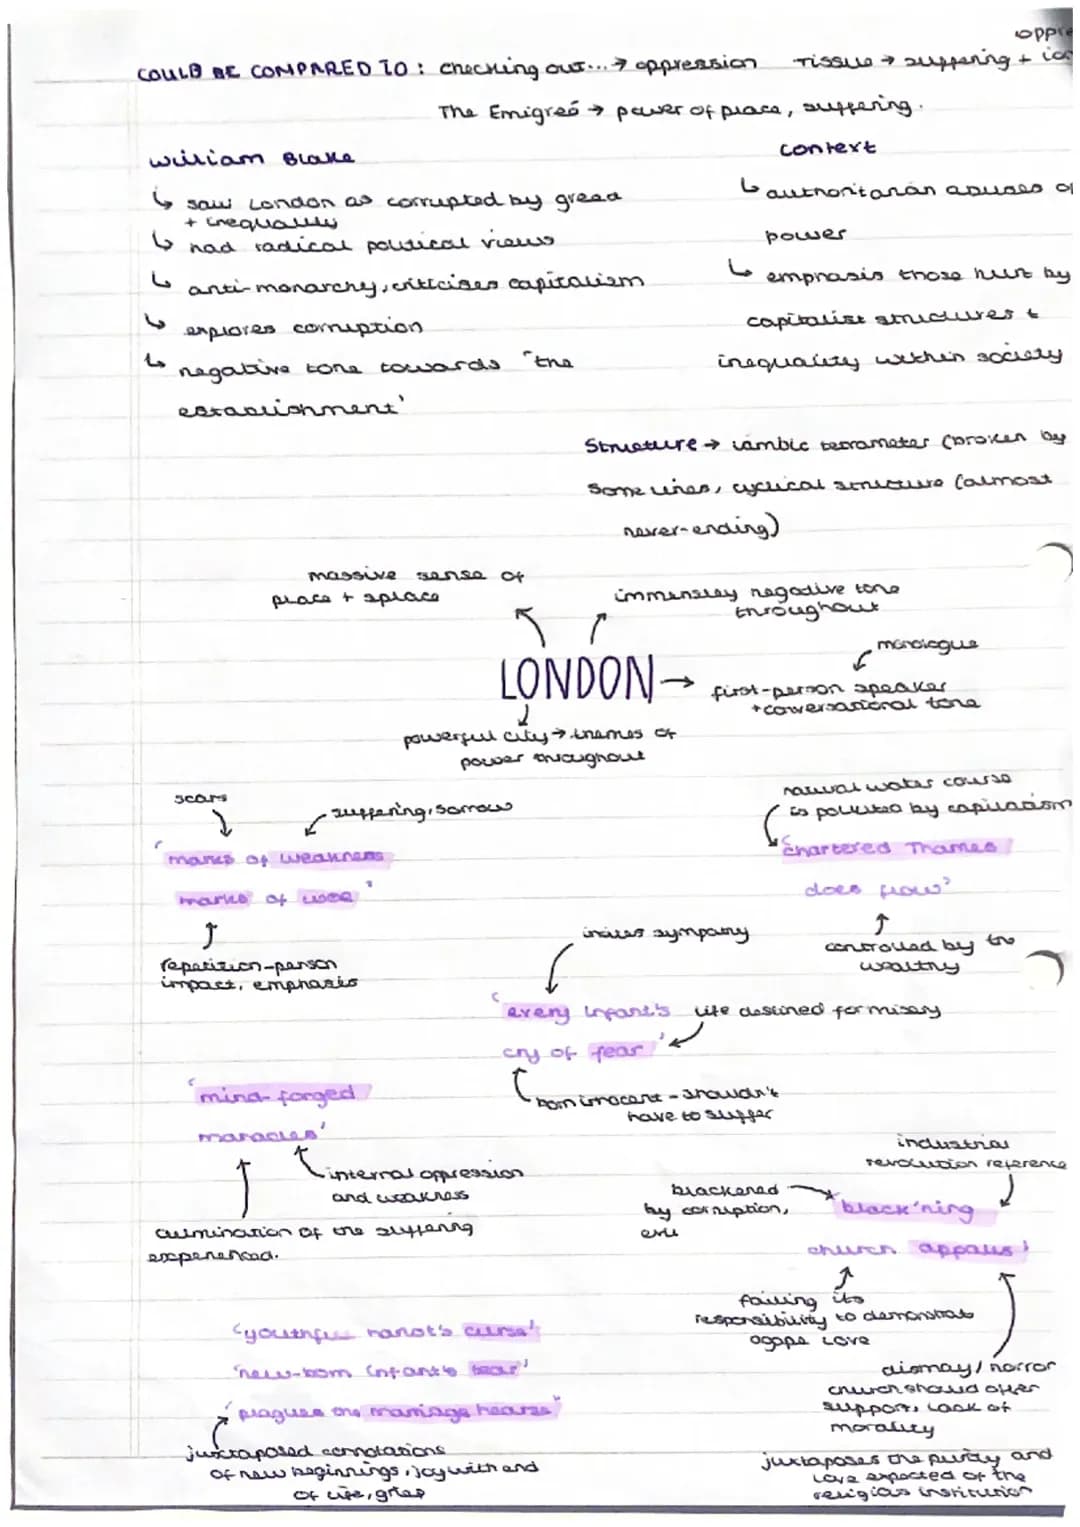 oppre
COULD BE COMPARED TO : Checking out... → oppression Tissue → suffering +
The Emigreé → power of place, suffering.
William Blake
context
↳ saw London as corrupted by greed
+ inequality
↳ had radical political views
↳ anti-monarchy, criticises capitalism
↳ explores corruption
↳ negative tone towards "the
establishment'
↳ authoritarian abuses of
power
↳ emphasis those hurt by
capitalist structures +
inequality within society
Structure → iambic tetrameter (broken by
some lines, cyclical structure (almost
never-ending)
massive sense of
place + splace
immensley negative tone
throughout
LONDON →
monologue
first-person speaker
+ conversational tone
powerful city → themes of
power throughout
scars
suffering, sorrow
'marks of weakness
marks of woe'
repetition-person
impact, emphasis
natural water course
is polluted by capitalism
'Chartered Thames
does flow'
controlled by the
wealthy
incites sympathy
'every infant's
cry of fear'
life destined for misery
born innocent - shouldn't
have to suffer
'mind-forged
manacles'
internal oppression
and weakness
culmination of the suffering
experienced.
industrial
revolution reference
blackened
by corruption,
evil
black'ning
church appalls'
failing its
responsibility to demonstrate
agape love
dismay/horror
church should offer
support, lack of
morality
juxtaposes the purity and
love expected of the
religious institution
'youthful harlot's curse'
'new-born infant's tear'
'plagues the marriage hearse"
juxtaposed connotations
of new beginnings, joy with end
of life, grief